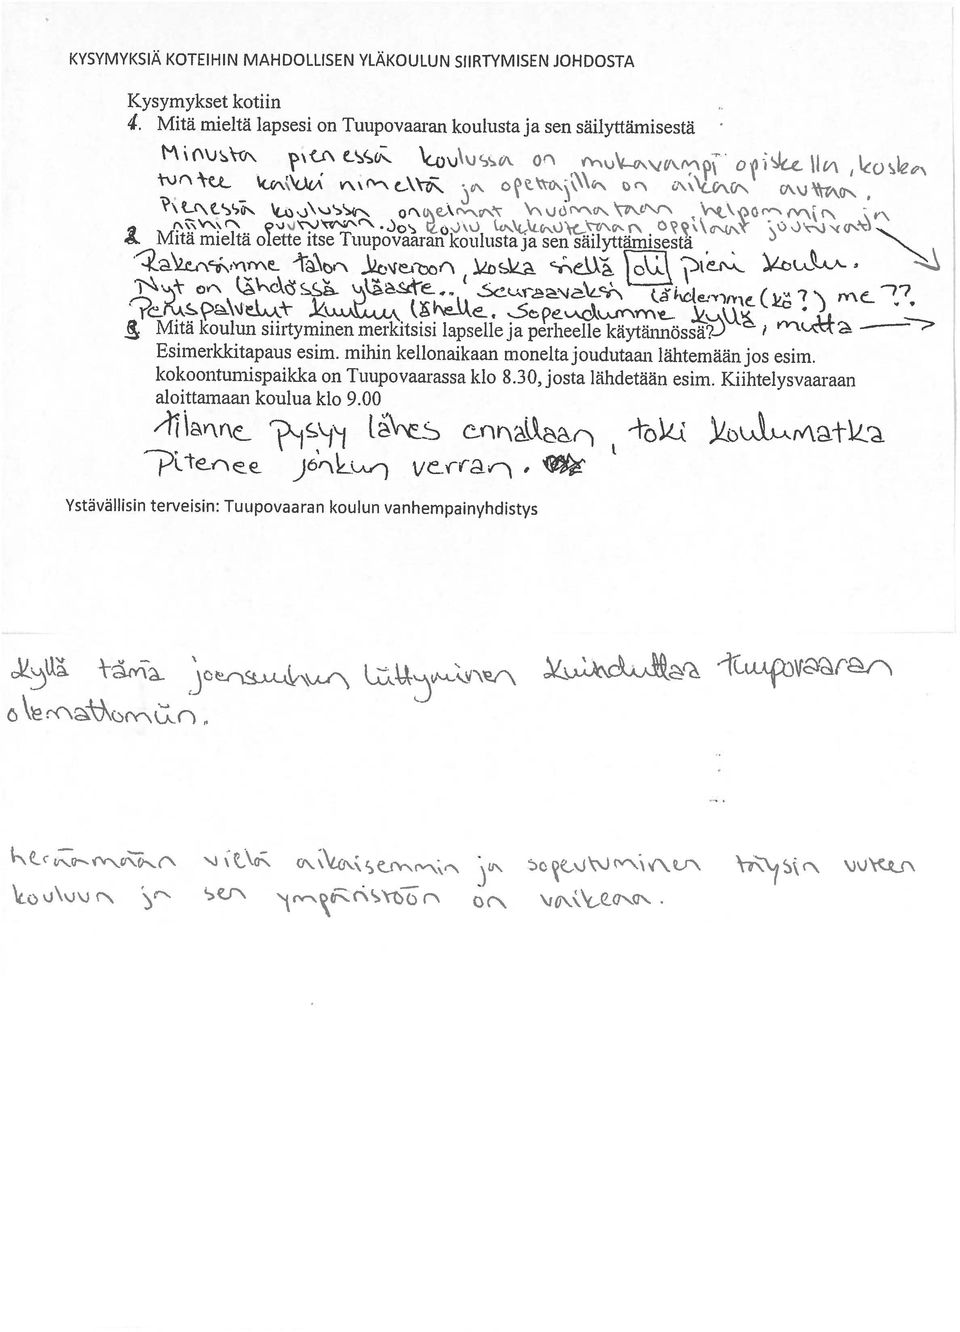 KYSYMYKSIÄ KOTEIHIN MAHDOLLISEN YLÄKOULUN SIIRTYMISEN JOHDOSTA
Kysymykset kotiin
1. Mitä mieltä lapsesi on Tuupovaaran koulusta ja sen säilyttämisestä
Minusta pienessä koulussa on mukavampi opiskella, koska
tuntee kaikki nimeltä ja opettajilla on aikaa auttaa.
Pienessä koulussa ongelmat huomataan helpommin ja
niihin puututaan. Jos koulu lakkautetaan oppilaat joutuvat
2. Mitä mieltä olette itse Tuupovaaran koulusta ja sen säilyttämisestä
Rakensimme talon Koveroon, koska siellä oli pieni koulu.
Nyt on lähdössä yläaste.. Seuraavaksi lähdemme (kö?) me ??
Peruspalvelut kuuluu lähelle. Sopeudumme kyllä, mutta →
3. Mitä koulun siirtyminen merkitsisi lapselle ja perheelle käytännössä?
Esimerkkitapaus esim. mihin kellonaikaan monelta joudutaan lähtemään jos esim.
kokoontumispaikka on Tuupovaarassa klo 8.30, josta lähdetään esim. Kiihtelysvaaraan
aloittamaan koulua klo 9.00
Tilanne pysyy lähes ennallaan, toki koulumatka
pitenee jonkun verran.
Ystävällisin terveisin: Tuupovaaran koulun vanhempainyhdistys
Kyllä tämä Joensuuhun liittyminen kuihduttaa Tuupovaaran
olemattomiin.
heräämään vielä aikaisemmin ja sopeutuminen täysin uuteen
kouluun ja sen ympäristöön on vaikeaa.